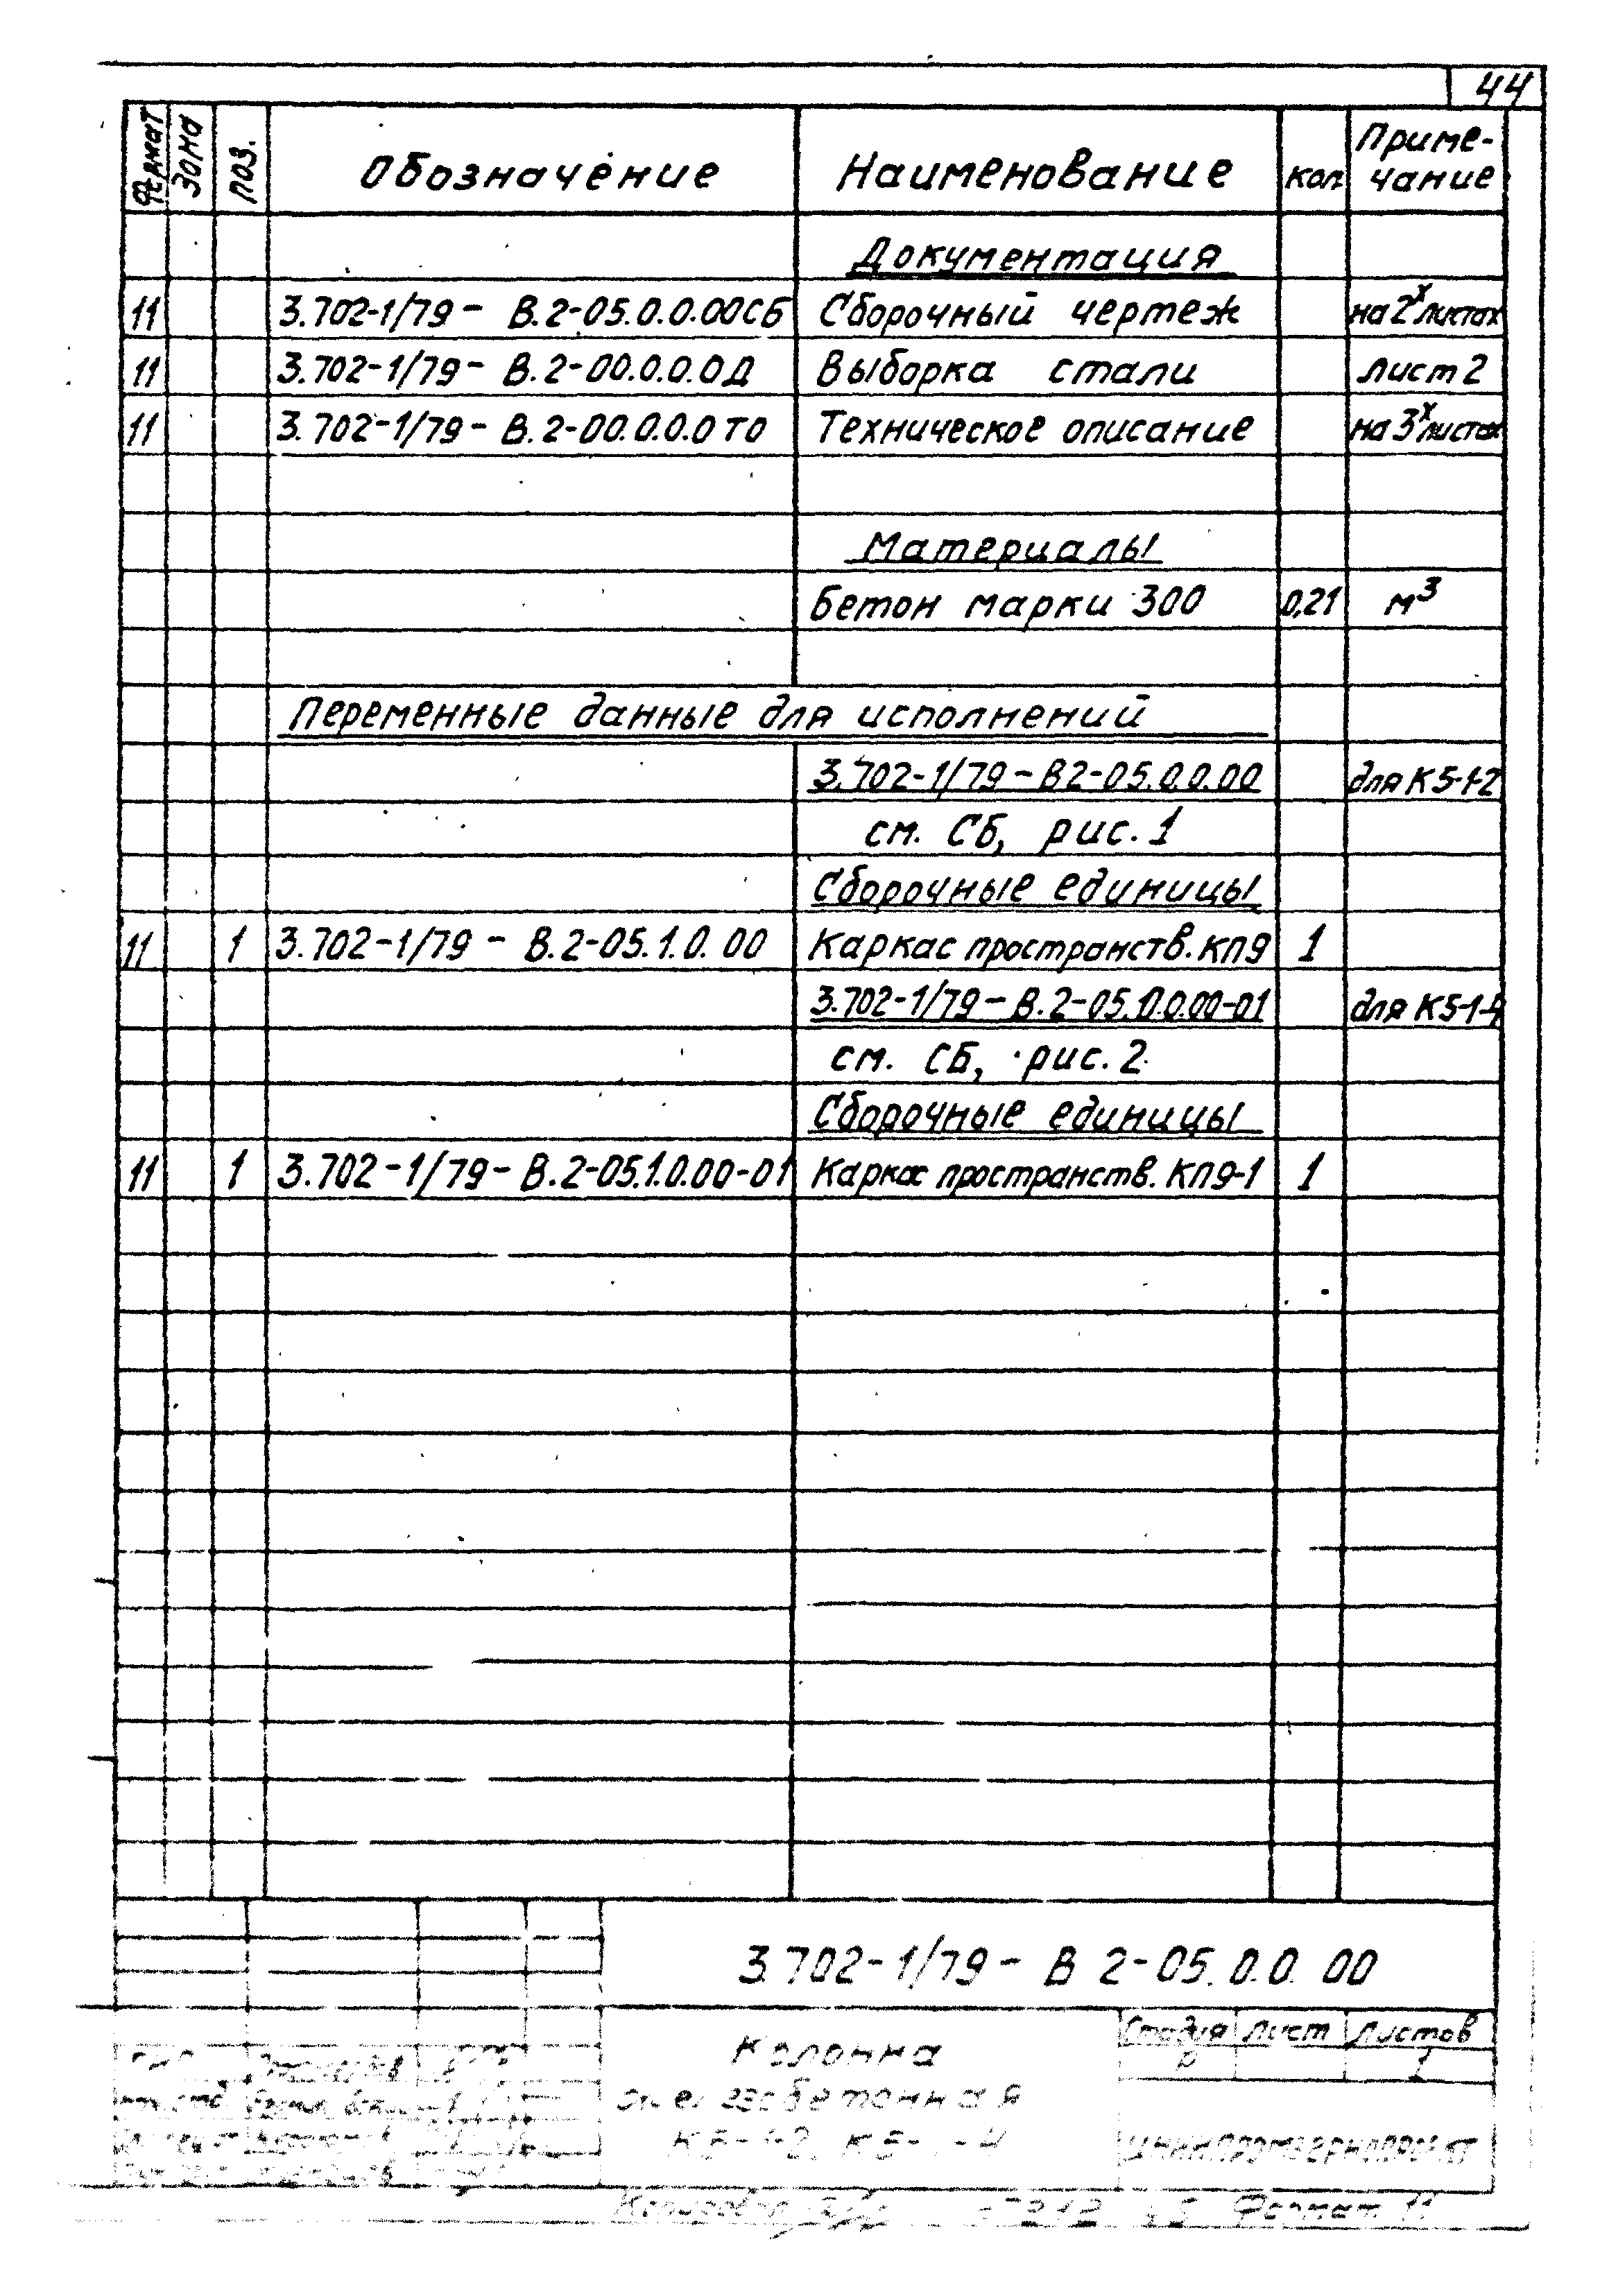 44
Формат Зона Поз. Обозначение Наименование Кол. Приме-
чание
Документация
11 3.702-1/79 - В.2-05.0.0.00СБ Сборочный чертеж на 2х листах
11 3.702-1/79 - В.2-00.0.0.0Д Выборка стали лист 2
11 3.702-1/79 - В.2-00.0.0.0ТО Техническое описание на 3х листах
Материалы
Бетон марки 300 0,21 м³
Переменные данные для исполнений
3.702-1/79-В2-05.0.0.00 для К5-1-2
см. СБ, рис. 1
Сборочные единицы
11 1 3.702-1/79 - В.2-05.1.0.00 Каркас пространств. КП9 1
3.702-1/79-В.2-05.0.0.00-01 для К5-1-4
см. СБ, рис. 2
Сборочные единицы
11 1 3.702-1/79-В.2-05.1.0.00-01 Каркас пространств. КП9-1 1
3.702-1/79- В 2-05.0.0.00
Стадия Лист Листов
Колонна
Р 1
железобетонная
К5-1-2, К5-1-4
Копировал Формат 11